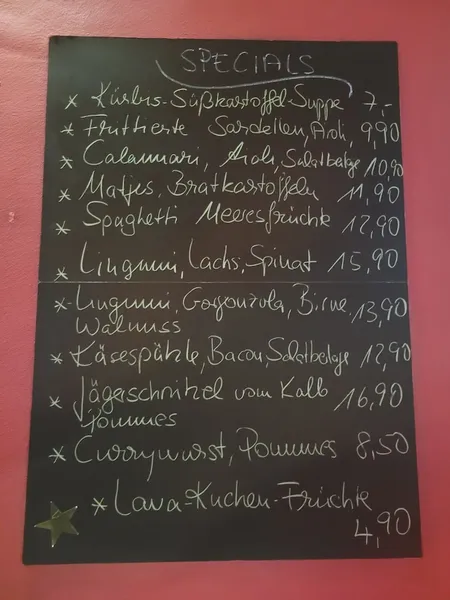 SPECIALS
* Kürbis-Süßkartoffel-Suppe 7,-
* Frittierte Sardellen, Aioli, 9,90
* Calamari, Aioli, Salatbeilage 10,90
* Matjes, Bratkartoffeln 11,90
* Spaghetti Meeresfrüchte 12,90
* Linguini, Lachs, Spinat 15,90
* Linguini, Gorgonzola, Birne, 13,90
Walnuss
* Käsespätzle, Bacon, Salatbeilage 12,90
* Jägerschnitzel vom Kalb 16,90
Pommes
* Currywurst, Pommes 8,50
* Lava-Kuchen-Früchte
4,90